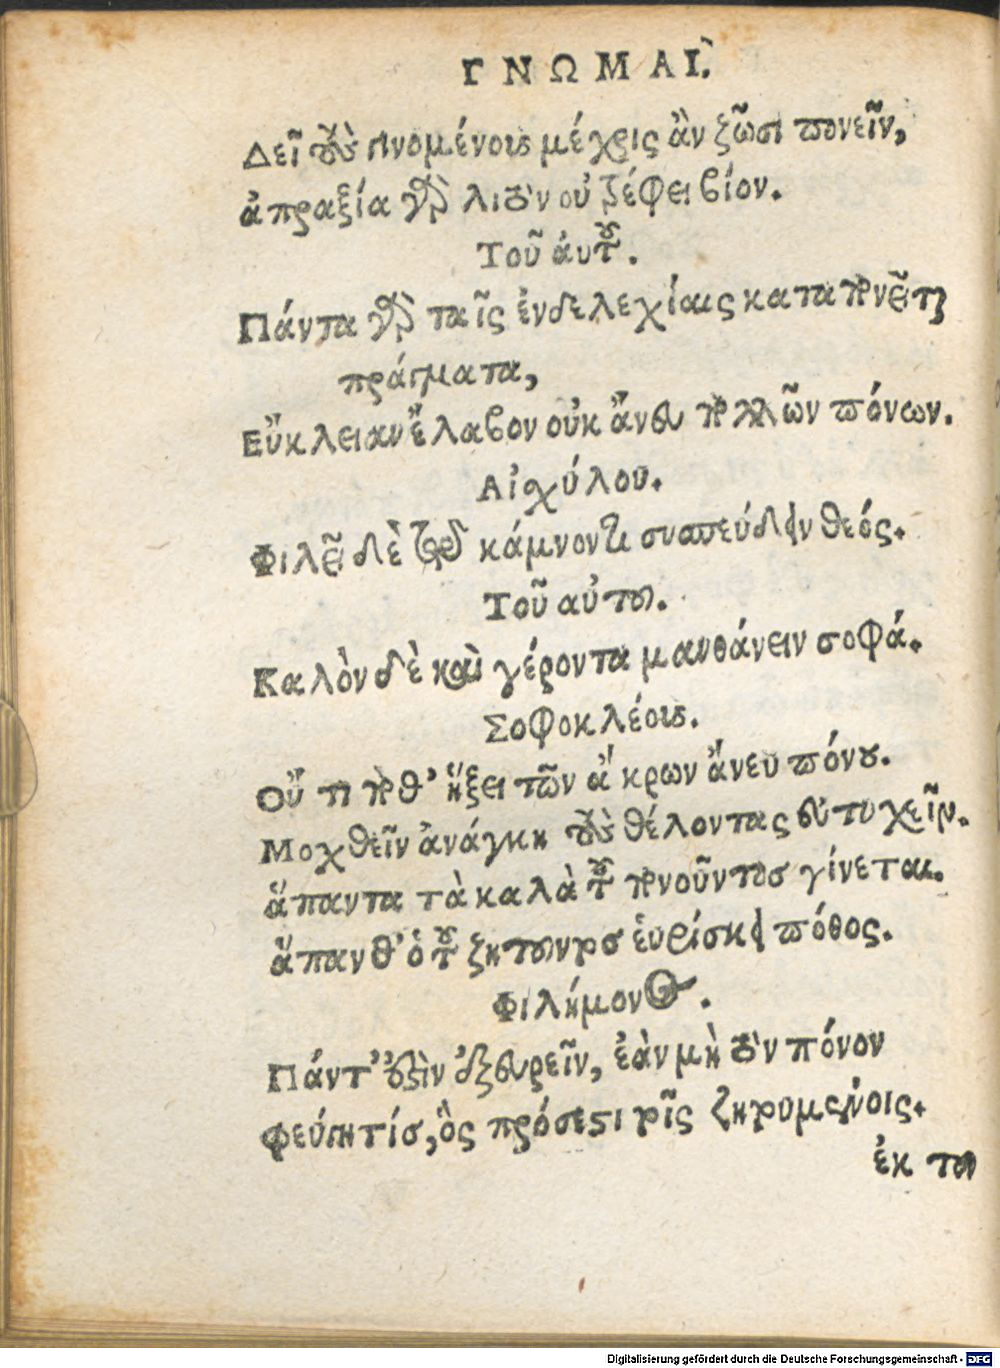 ΓΝΩΜΑΙ.
Δεῖ τοὺς πενομένους μέχρις ἂν ζῶσι πονεῖν,
ἀπραξία γὰρ λιτὸν οὐ τρέφει βίον.
Τοῦ αὐτοῦ.
Πάντα γὰρ ταῖς ἐνδελεχίαις καταπονεῖται
πράγματα,
Εὔκλειαν ἔλαβον οὐκ ἄνευ πολλῶν πόνων.
Αἰχύλου.
Φιλεῖ δὲ τῷ κάμνοντι συσπεύδειν θεός.
Τοῦ αὐτου.
Καλὸν δὲ καὶ γέροντα μανθάνειν σοφά.
Σοφοκλέους.
Οὔ τι ποθ' ἥξει τῶν ἄκρων ἄνευ πόνου.
Μοχθεῖν ἀνάγκη τοὺς θέλοντας εὐτυχεῖν.
ἅπαντα τὰ καλὰ τοῦ πονοῦντος γίνεται.
ἅπανθ' ὁ τοῦ ζητουντος εὑρίσκει πόθος.
Φιλήμονος.
Πάντ' ἐστὶν ἐξευρεῖν, ἐὰν μὴ τὸν πόνον
φεύγῃ τίς, ὃς πρόσεστι τοῖς ζητουμένοις.
ἐκ του